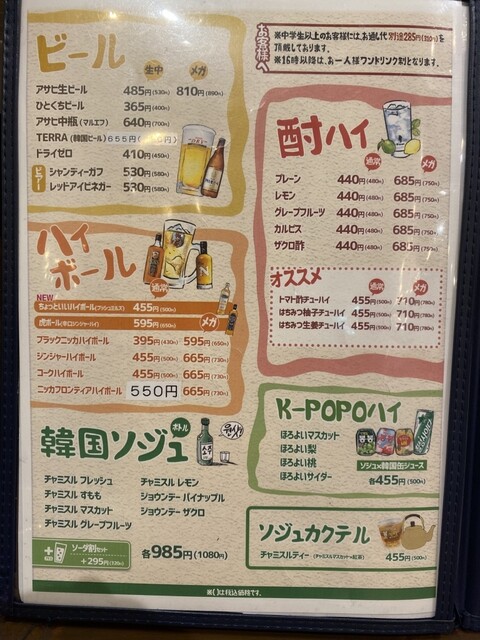 ビール
生中 メガ
アサヒ生ビール 485円(530円) 810円(890円)
ひとくちビール 365円(400円)
アサヒ中瓶(マルエフ) 640円(700円)
TERRA(韓国ビール) 655円
ドライゼロ 410円(450円)
ビアー
シャンディーガフ 530円(580円)
レッドアイビネガー 530円(580円)
お客様へ
※中学生以上のお客様には、お通し代 別途285円(310円)を
頂戴しております。
※16時以降は、お一人様ワンドリンク制となります。
酎ハイ
通常 メガ
プレーン 440円(480円) 685円(750円)
レモン 440円(480円) 685円(750円)
グレープフルーツ 440円(480円) 685円(750円)
カルピス 440円(480円) 685円(750円)
ザクロ酢 440円(480円) 685円(750円)
オススメ
通常 メガ
トマト酢チューハイ 455円(500円) 710円(780円)
はちみつ柚子チューハイ 455円(500円) 710円(780円)
はちみつ生姜チューハイ 455円(500円) 710円(780円)
ハイボール
通常
NEW
ちょっといいハイボール 455円(500円)
虎ボール(辛口ジンジャーハイ) 595円(650円)
メガ
ブラックニッカハイボール 395円(430円) 595円(650円)
ジンジャーハイボール 455円(500円) 665円(730円)
コークハイボール 455円(500円) 665円(730円)
ニッカフロンティアハイボール 550円 665円(730円)
K-POPOハイ
ほろよいマスカット
ほろよい梨
ほろよい桃
ほろよいサイダー
ソジュ×韓国缶ジュース
各455円(500円)
韓国ソジュ
ボトル
チャミスル フレッシュ
チャミスル すもも
チャミスル マスカット
チャミスル グレープフルーツ
チャミスル レモン
ジョウンデー パイナップル
ジョウンデー ザクロ
ソーダ割セット
+295円(320円)
各985円(1080円)
ソジュカクテル
チャミスルティー (チャミスルマスカット×紅茶) 455円(500円)
※( )は税込価格です。